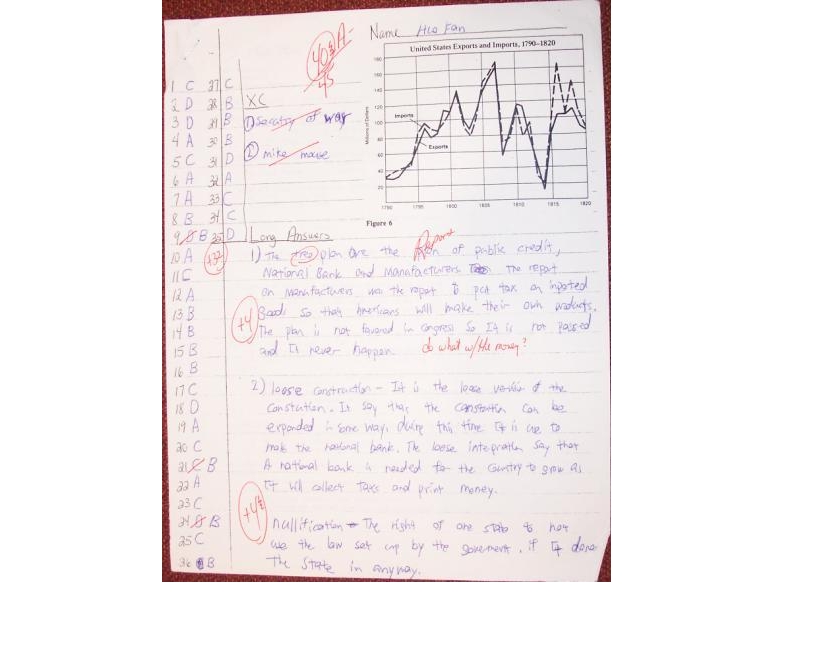 Name Hao Fan
40½ A-
45
United States Exports and Imports, 1790–1820
Millions of Dollars
180
160
140
120
100
80
60
40
20
Imports
Exports
1790 1795 1800 1805 1810 1815 1820
Figure 6
1 C 27 C
2 D 28 B
3 D 29 B
4 A 30 B
5 C 31 D
6 A 32 A
7 A 33 C
8 B 34 C
9 B 35 D
10 A
11 C
12 A
13 B
14 B
15 B
16 B
17 C
18 D
19 A
20 C
21 B
22 A
23 C
24 B
25 C
36 B
XC
1) Secatry of way
2) mike mouse
+32
Long Answers
1) The plan are the Report of public credit,
National Bank and Manufacturers The report
on manufacturers was the report to put tax on inported
Goods so that Americans will make their own products.
The plan is not favored in congress so It is not passed
and It never happen. do what w/ the money?
+4
2) loose construction - It is the loose version of the
constution. It say that the constution can be
expanded in some way. during this time It is use to
make the national bank. The loose intepration say that
A national bank is needed for the country to grow as
It will collect taxs and print money.
+4½
nullification - The right of one state to not
use the law set up by the goverment. if It dose
The State in anyway.